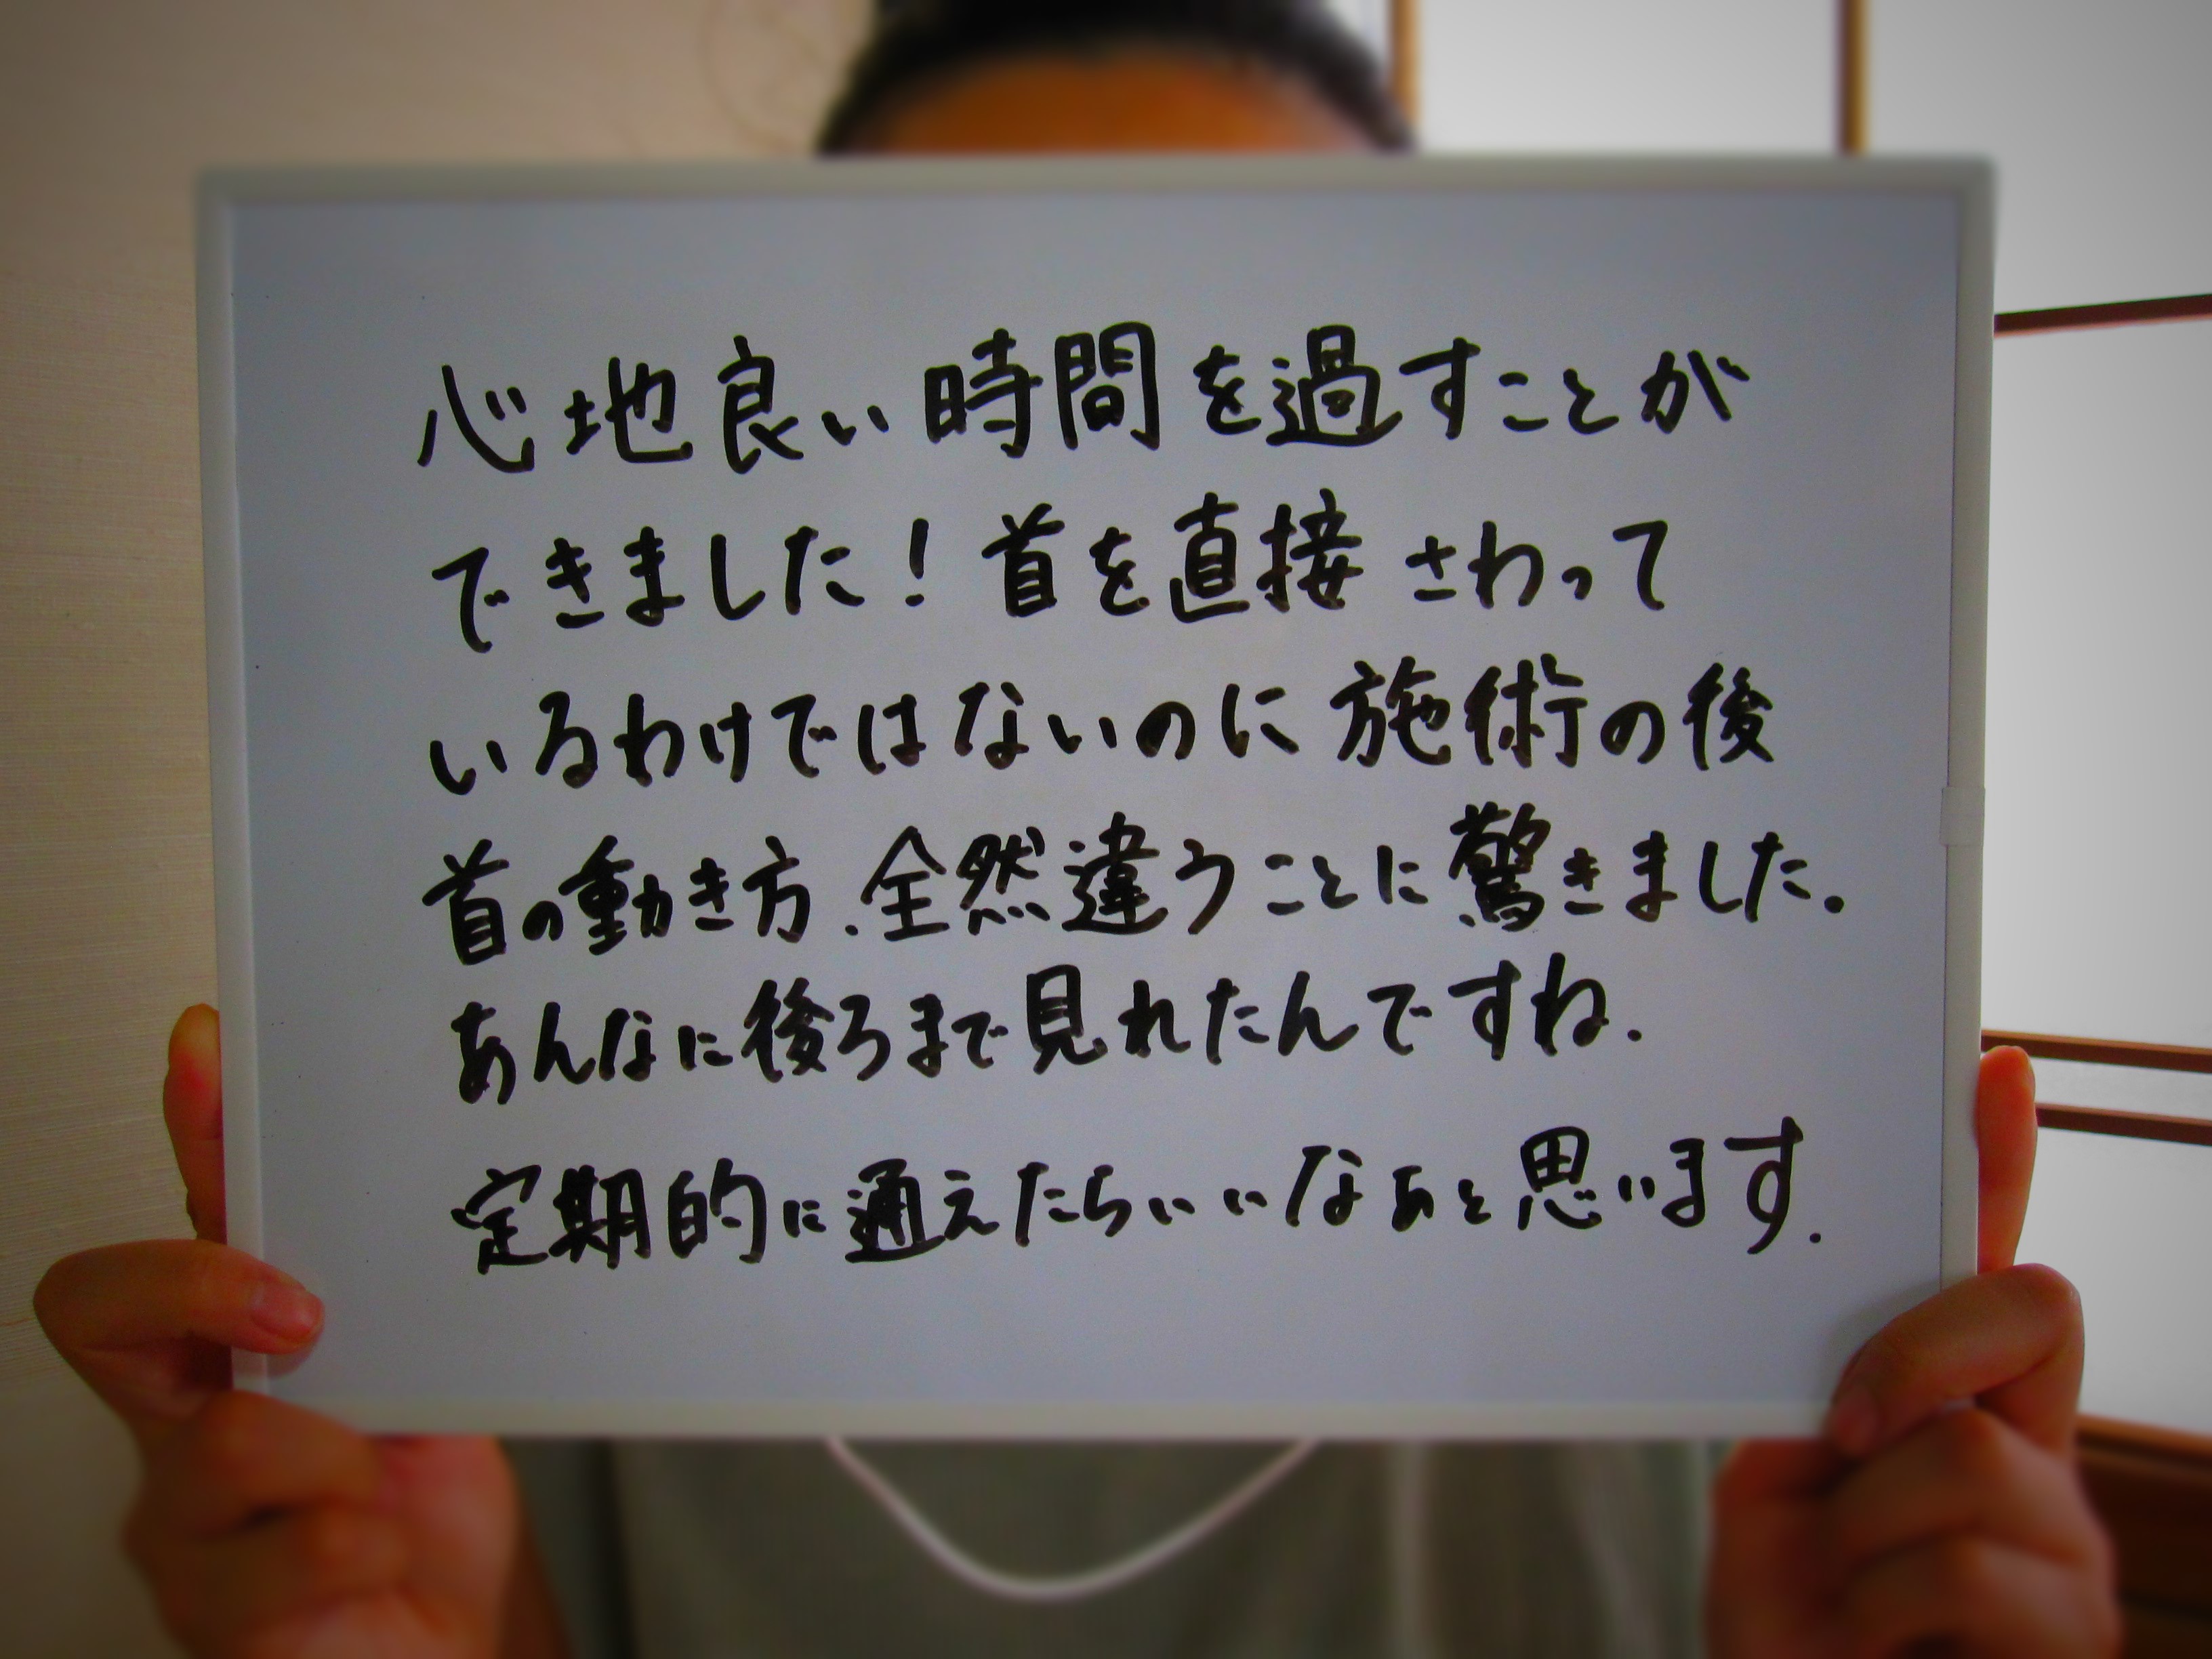 心地良い時間を過すことが
できました！首を直接さわって
いるわけではないのに施術の後
首の動き方、全然違うことに驚きました。
あんなに後ろまで見れたんですね.
定期的に通えたらいいなぁと思います.